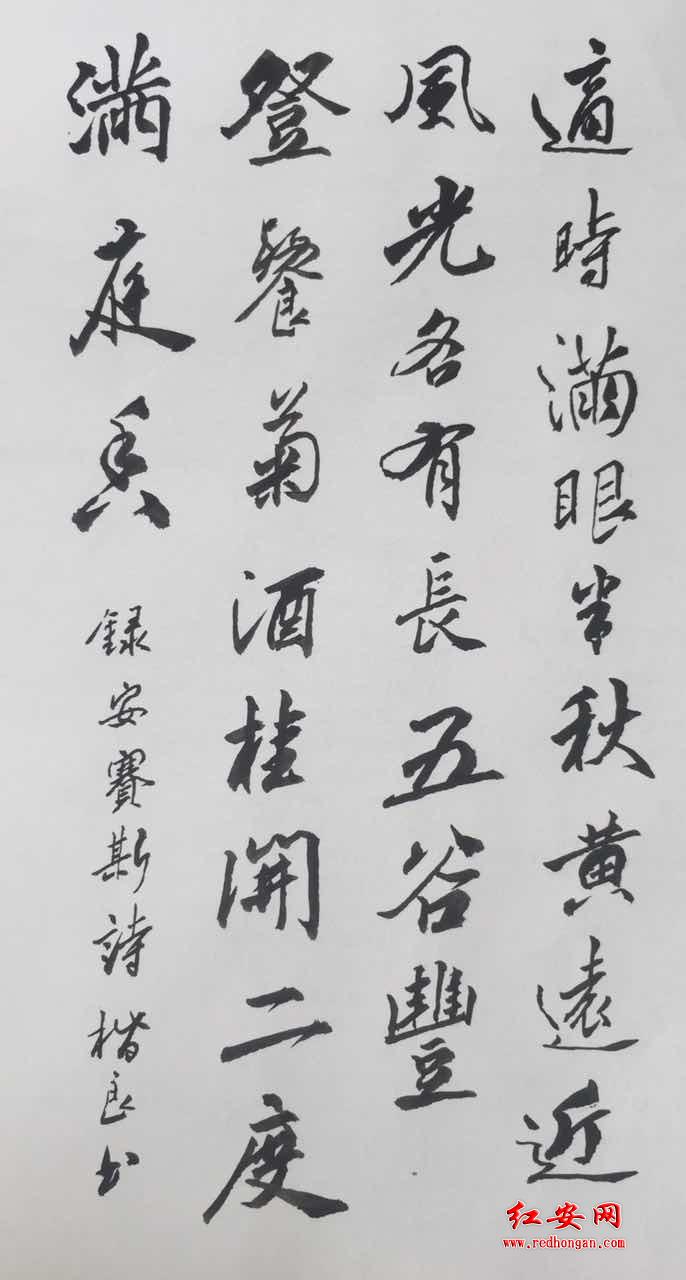 適時滿眼半秋黄遠近
風光各有長五谷豐
登餐菊酒桂開二度
满庭香
録安賽斯詩楷良书
红安网
www.redhongan.com